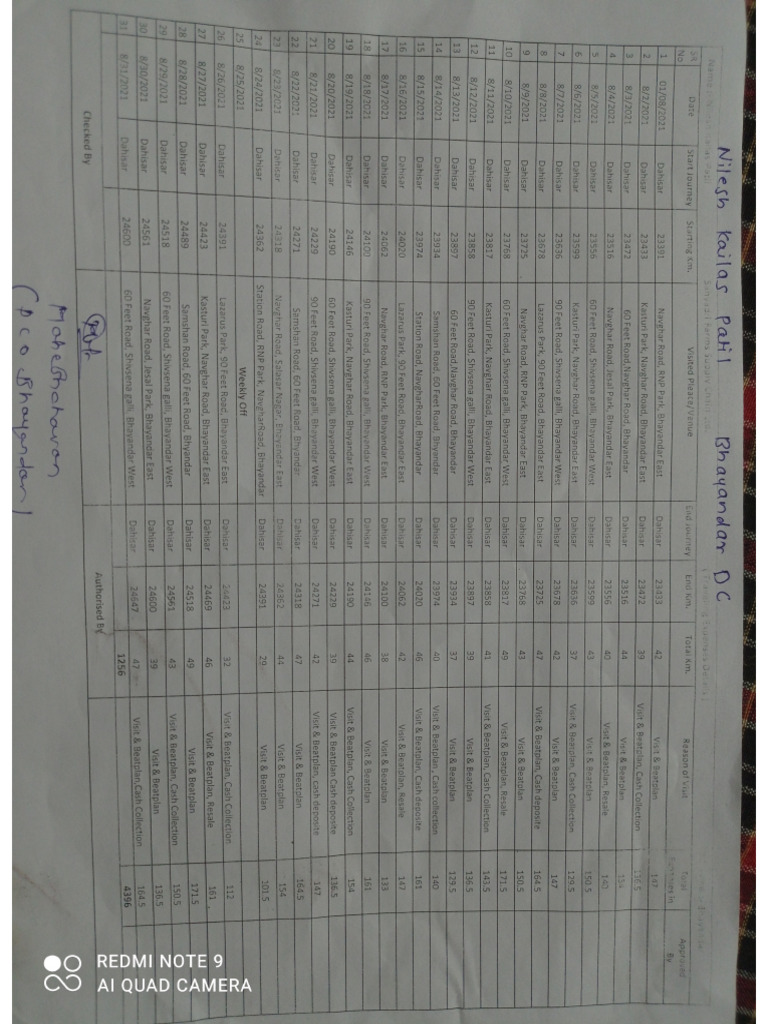 Nilesh Kailas Patil Bhayandar DC
SR No Date Start Journey Starting Km. Visited Pleact/Venue End Journey End Km. Total Km. Reason of Visit Total Approved By
1 01/08/2021 Dahisar 23391 Navghar Road, RNP Park, Bhayandar East Dahisar 23433 42 Visit & Beatplan 147
2 8/2/2021 Dahisar 23433 Kasturi Park, Navghar Road, Bhayandar East Dahisar 23472 39 Visit & Beatplan, Cash Collection 136.5
3 8/3/2021 Dahisar 23472 60 Feet Road,Navghar Road, Bhayandar Dahisar 23516 44 Visit & Beatplan 154
4 8/4/2021 Dahisar 23516 Navghar Road, Jesal Park, Bhayandar East Dahisar 23556 40 Visit & Beatplan, Resale 140
5 8/5/2021 Dahisar 23556 60 Feet Road, Shivsena galli, Bhayandar West Dahisar 23599 43 Visit & Beatplan 150.5
6 8/6/2021 Dahisar 23599 Kasturi Park, Navghar Road, Bhayandar East Dahisar 23636 37 Visit & Beatplan, Cash Collection 129.5
7 8/7/2021 Dahisar 23636 90 Feet Road, Shivsena galli, Bhayandar West Dahisar 23678 42 Visit & Beatplan 147
8 8/8/2021 Dahisar 23678 Lazarus Park, 90 Feet Road, Bhayandar East Dahisar 23725 47 Visit & Beatplan, Cash deposite 164.5
9 8/9/2021 Dahisar 23725 Navghar Road, RNP Park, Bhayandar East Dahisar 23768 43 Visit & Beatplan 150.5
10 8/10/2021 Dahisar 23768 60 Feet Road, Shivsena galli, Bhayandar West Dahisar 23817 49 Visit & Beatplan, Resale 171.5
11 8/11/2021 Dahisar 23817 Kasturi Park, Navghar Road, Bhayandar East Dahisar 23858 41 Visit & Beatplan, Cash Collection 143.5
12 8/12/2021 Dahisar 23858 90 Feet Road, Shivsena galli, Bhayandar West Dahisar 23897 39 Visit & Beatplan 136.5
13 8/13/2021 Dahisar 23897 60 Feet Road,Navghar Road, Bhayandar Dahisar 23934 37 Visit & Beatplan 129.5
14 8/14/2021 Dahisar 23934 Samshan Road, 60 Feet Road, Bhyandar Dahisar 23974 40 Visit & Beatplan , Cash collection 140
15 8/15/2021 Dahisar 23974 Station Road, NavgharRoad, Bhayandar Dahisar 24020 46 Visit & Beatplan, Cash deposite 161
16 8/16/2021 Dahisar 24020 Lazarus Park, 90 Feet Road, Bhayandar East Dahisar 24062 42 Visit & Beatplan, Resale 147
17 8/17/2021 Dahisar 24062 Navghar Road, RNP Park, Bhayandar East Dahisar 24100 38 Visit & Beatplan 133
18 8/18/2021 Dahisar 24100 90 Feet Road, Shivsena galli, Bhayandar West Dahisar 24146 46 Visit & Beatplan 161
19 8/19/2021 Dahisar 24146 Kasturi Park, Navghar Road, Bhayandar East Dahisar 24190 44 Visit & Beatplan, Cash collection 154
20 8/20/2021 Dahisar 24190 60 Feet Road, Shivsena galli, Bhayandar West Dahisar 24229 39 Visit & Beatplan Cash deposite 136.5
21 8/21/2021 Dahisar 24229 90 Feet Road, Shivsena galli, Bhayandar West Dahisar 24271 42 Visit & Beatplan, cash deposite 147
22 8/22/2021 Dahisar 24271 Samshan Road, 60 Feet Road, Bhyandar Dahisar 24318 47 Visit & Beatplan 164.5
23 8/23/2021 Dahisar 24318 Navghar Road, Salasar Nagar, Bhayandar East Dahisar 24362 44 Visit & Beatplan 154
24 8/24/2021 Dahisar 24362 Station Road, RNP Park, NavgharRoad, Bhayandar Dahisar 24391 29 Visit & Beatplan 101.5
25 8/25/2021 Weekly Off
26 8/26/2021 Dahisar 24391 Lazarus Park, 90 Feet Road, Bhayandar East Dahisar 24423 32 Visit & Beatplan, Cash Collection 112
27 8/27/2021 Dahisar 24423 Kasturi Park, Navghar Road, Bhayandar East Dahisar 24469 46 Visit & Beatplan, Resale 161
28 8/28/2021 Dahisar 24489 Samshan Road, 60 Feet Road, Bhyandar Dahisar 24518 49 Visit & Beatplan 171.5
29 8/29/2021 Dahisar 24518 60 Feet Road, Shivsena galli, Bhayandar West Dahisar 24561 43 Visit & Beatplan, Cash Collection 150.5
30 8/30/2021 Dahisar 24561 Navghar Road, Jesal Park, Bhayandar East Dahisar 24600 39 Visit & Beatplan 136.5
31 8/31/2021 Dahisar 24600 60 Feet Road, Shivsena galli, Bhayandar West Dahisar 24647 47 Visit & Beatplan,Cash Collection 164.5
1256 4396
Checked By Authorised By
REDMI NOTE 9
AI QUAD CAMERA